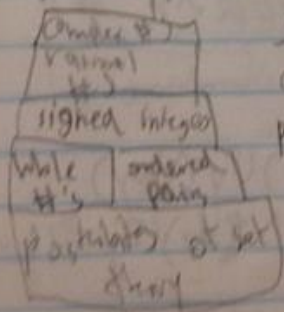 Complex #s
rational
#'s
signed integers
whole
#'s
ordered
pairs
postulates of set
theory